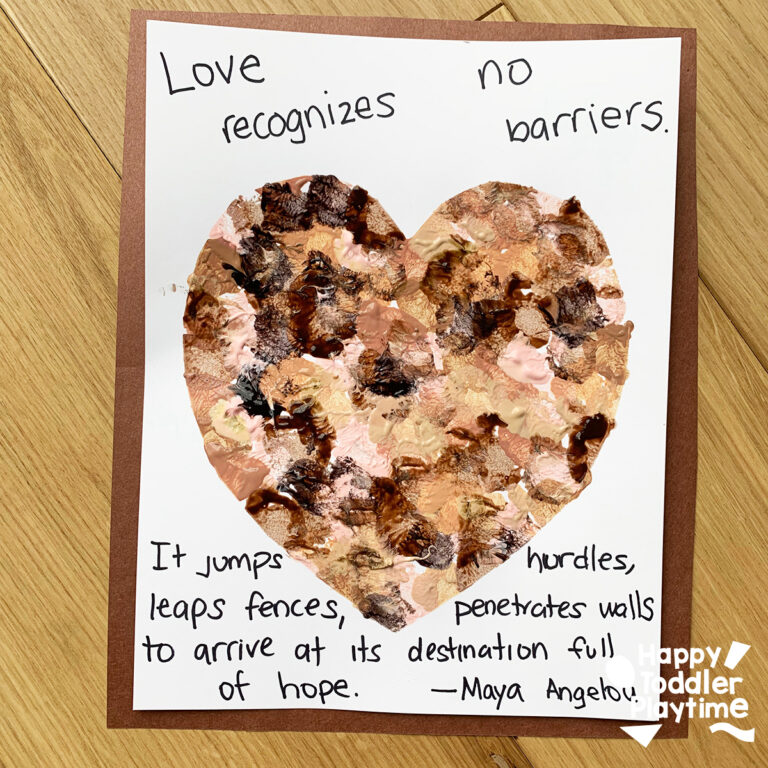 Love no
recognizes barriers.
It jumps hurdles,
leaps fences, penetrates walls
to arrive at its destination full
of hope. —Maya Angelou
Happy
Toddler
Playtime